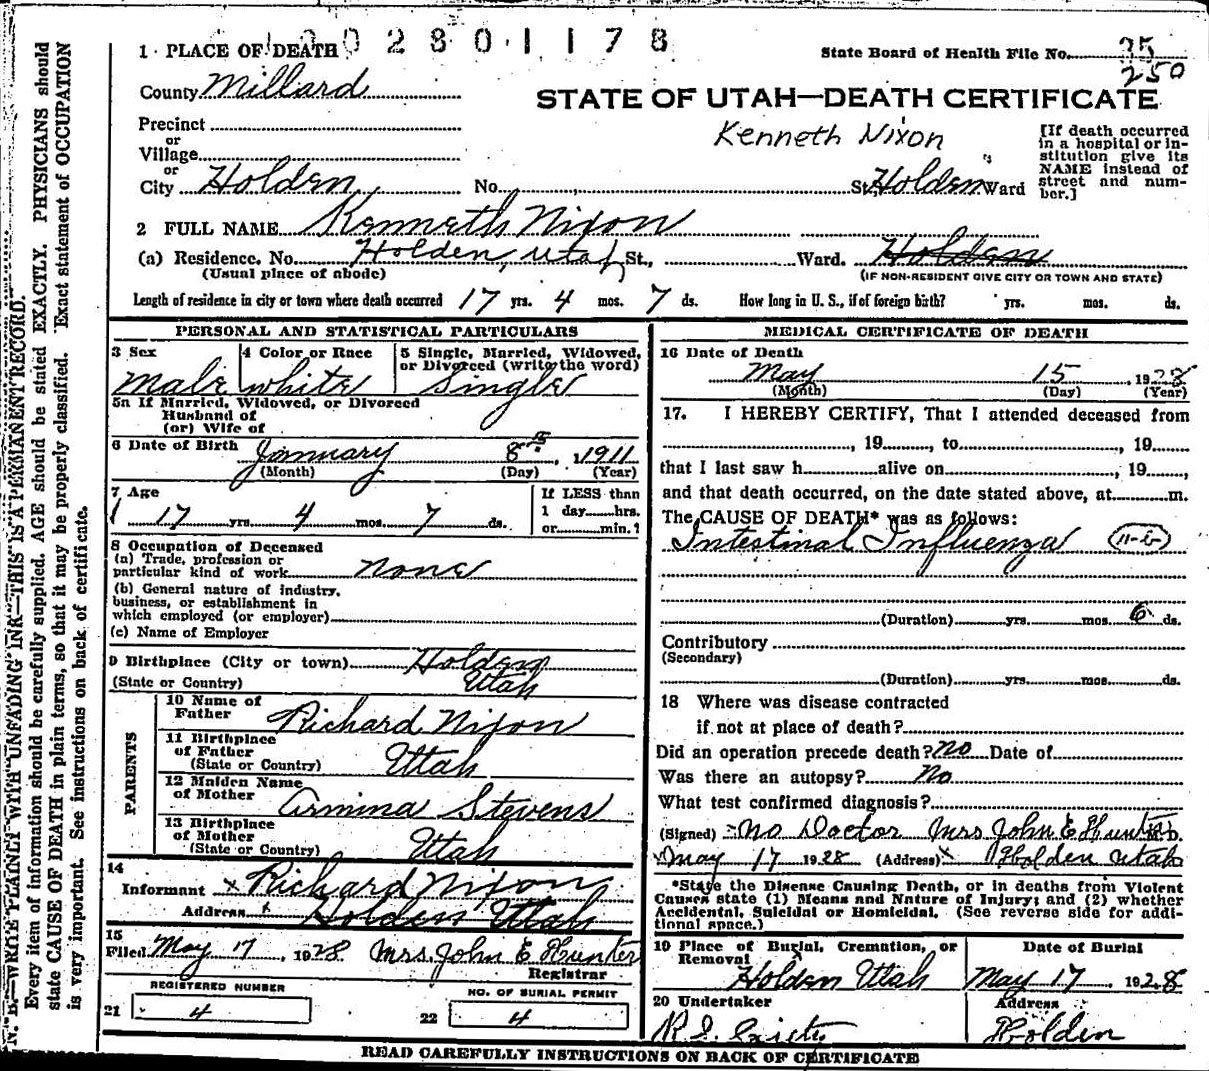 1 PLACE OF DEATH
2 8 0 1 1 7 8
State Board of Health File No. 25
250
County Millard
STATE OF UTAH—DEATH CERTIFICATE
Precinct
Kenneth Nixon
or
Village
or
City Holden No. St. Holden Ward
[If death occurred
in a hospital or in-
stitution give its
NAME instead of
street and num-
ber.]
2 FULL NAME Kenneth Nixon
(a) Residence. No. Holden, Utah St., Ward. Holden
(Usual place of abode)
(IF NON-RESIDENT GIVE CITY OR TOWN AND STATE)
Length of residence in city or town where death occurred 17 yrs. 4 mos. 7 ds. How long in U. S., if of foreign birth? yrs. mos. ds.
PERSONAL AND STATISTICAL PARTICULARS
3 Sex
Male
4 Color or Race
white
5 Single, Married, Widowed,
or Divorced (write the word)
Single
5a If Married, Widowed, or Divorced
Husband of
(or) Wife of
6 Date of Birth January 8th, 1911
(Month) (Day) (Year)
7 Age
17 yrs. 4 mos. 7 ds.
If LESS than
1 day hrs.
or min.?
8 Occupation of Deceased
(a) Trade, profession or
particular kind of work none
(b) General nature of industry,
business, or establishment in
which employed (or employer)
(c) Name of Employer
9 Birthplace (City or town) Holden
(State or Country) Utah
PARENTS
10 Name of
Father Richard Nixon
11 Birthplace
of Father Utah
(State or Country)
12 Maiden Name
of Mother Armina Stevens
13 Birthplace
of Mother Utah
(State or Country)
14
Informant x Richard Nixon
Address Holden Utah
15
Filed May 17, 1928 Mrs. John E Hunter
Registrar
REGISTERED NUMBER
21 4
NO. OF BURIAL PERMIT
22 4
MEDICAL CERTIFICATE OF DEATH
16 Date of Death
May 15, 1928
(Month) (Day) (Year)
17. I HEREBY CERTIFY, That I attended deceased from
, 19 , to , 19
that I last saw h alive on , 19 ,
and that death occurred, on the date stated above, at m.
The CAUSE OF DEATH* was as follows:
Intestinal Influenza (11-b)
(Duration) yrs. mos. 6 ds.
Contributory
(Secondary)
(Duration) yrs. mos. ds.
18 Where was disease contracted
if not at place of death?
Did an operation precede death? no Date of
Was there an autopsy? No
What test confirmed diagnosis?
(Signed) no Doctor Mrs John E Hunter
May 17 1928 (Address) x Holden Utah
*State the Disease Causing Death, or in deaths from Violent
Causes state (1) Means and Nature of Injury; and (2) whether
Accidental, Suicidal or Homicidal. (See reverse side for addi-
tional space.)
19 Place of Burial, Cremation, or
Removal
Holden Utah
Date of Burial
May 17, 1928
20 Undertaker
R S
Address
Holden
READ CAREFULLY INSTRUCTIONS ON BACK OF CERTIFICATE
N. B.—WRITE PLAINLY WITH UNFADING INK—THIS IS A PERMANENT RECORD.
Every item of information should be carefully supplied. AGE should be stated EXACTLY. PHYSICIANS should
state CAUSE OF DEATH in plain terms, so that it may be properly classified. Exact statement of OCCUPATION
is very important. See instructions on back of certificate.